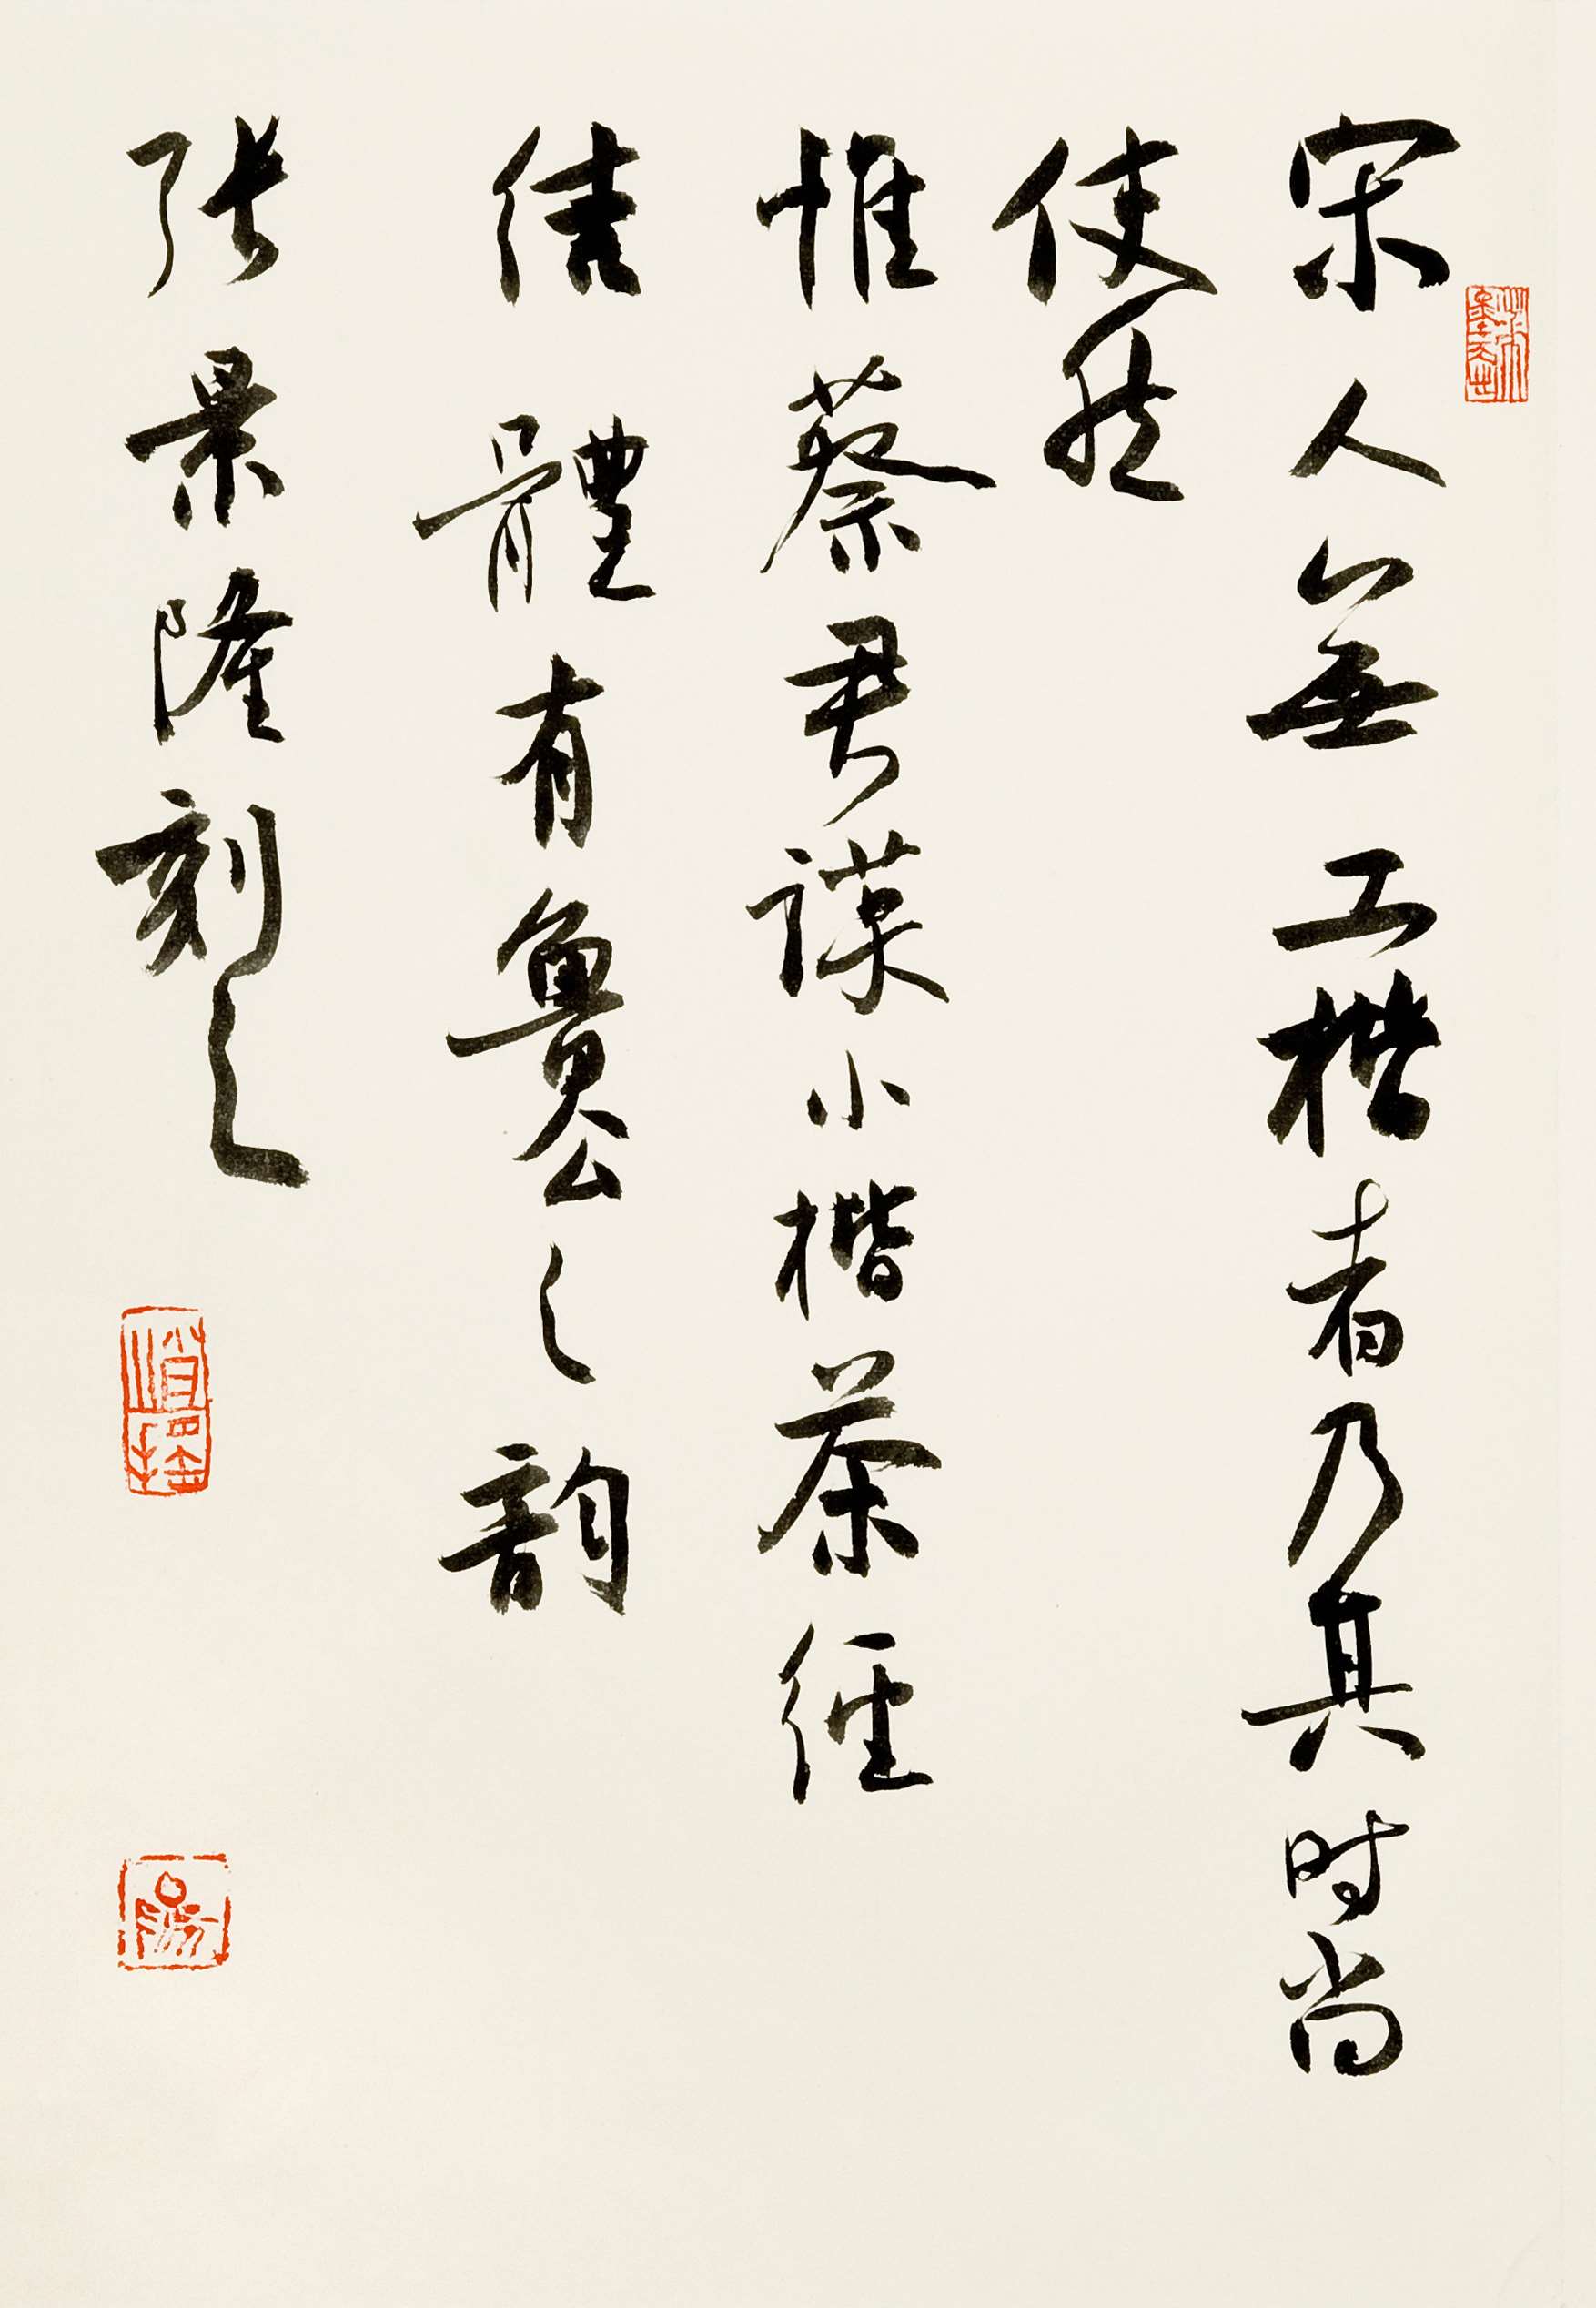 宋人無工楷者乃其时尚
使然
惟蔡君謨小楷茶經
結體有魯公之韵
張景隆刻之